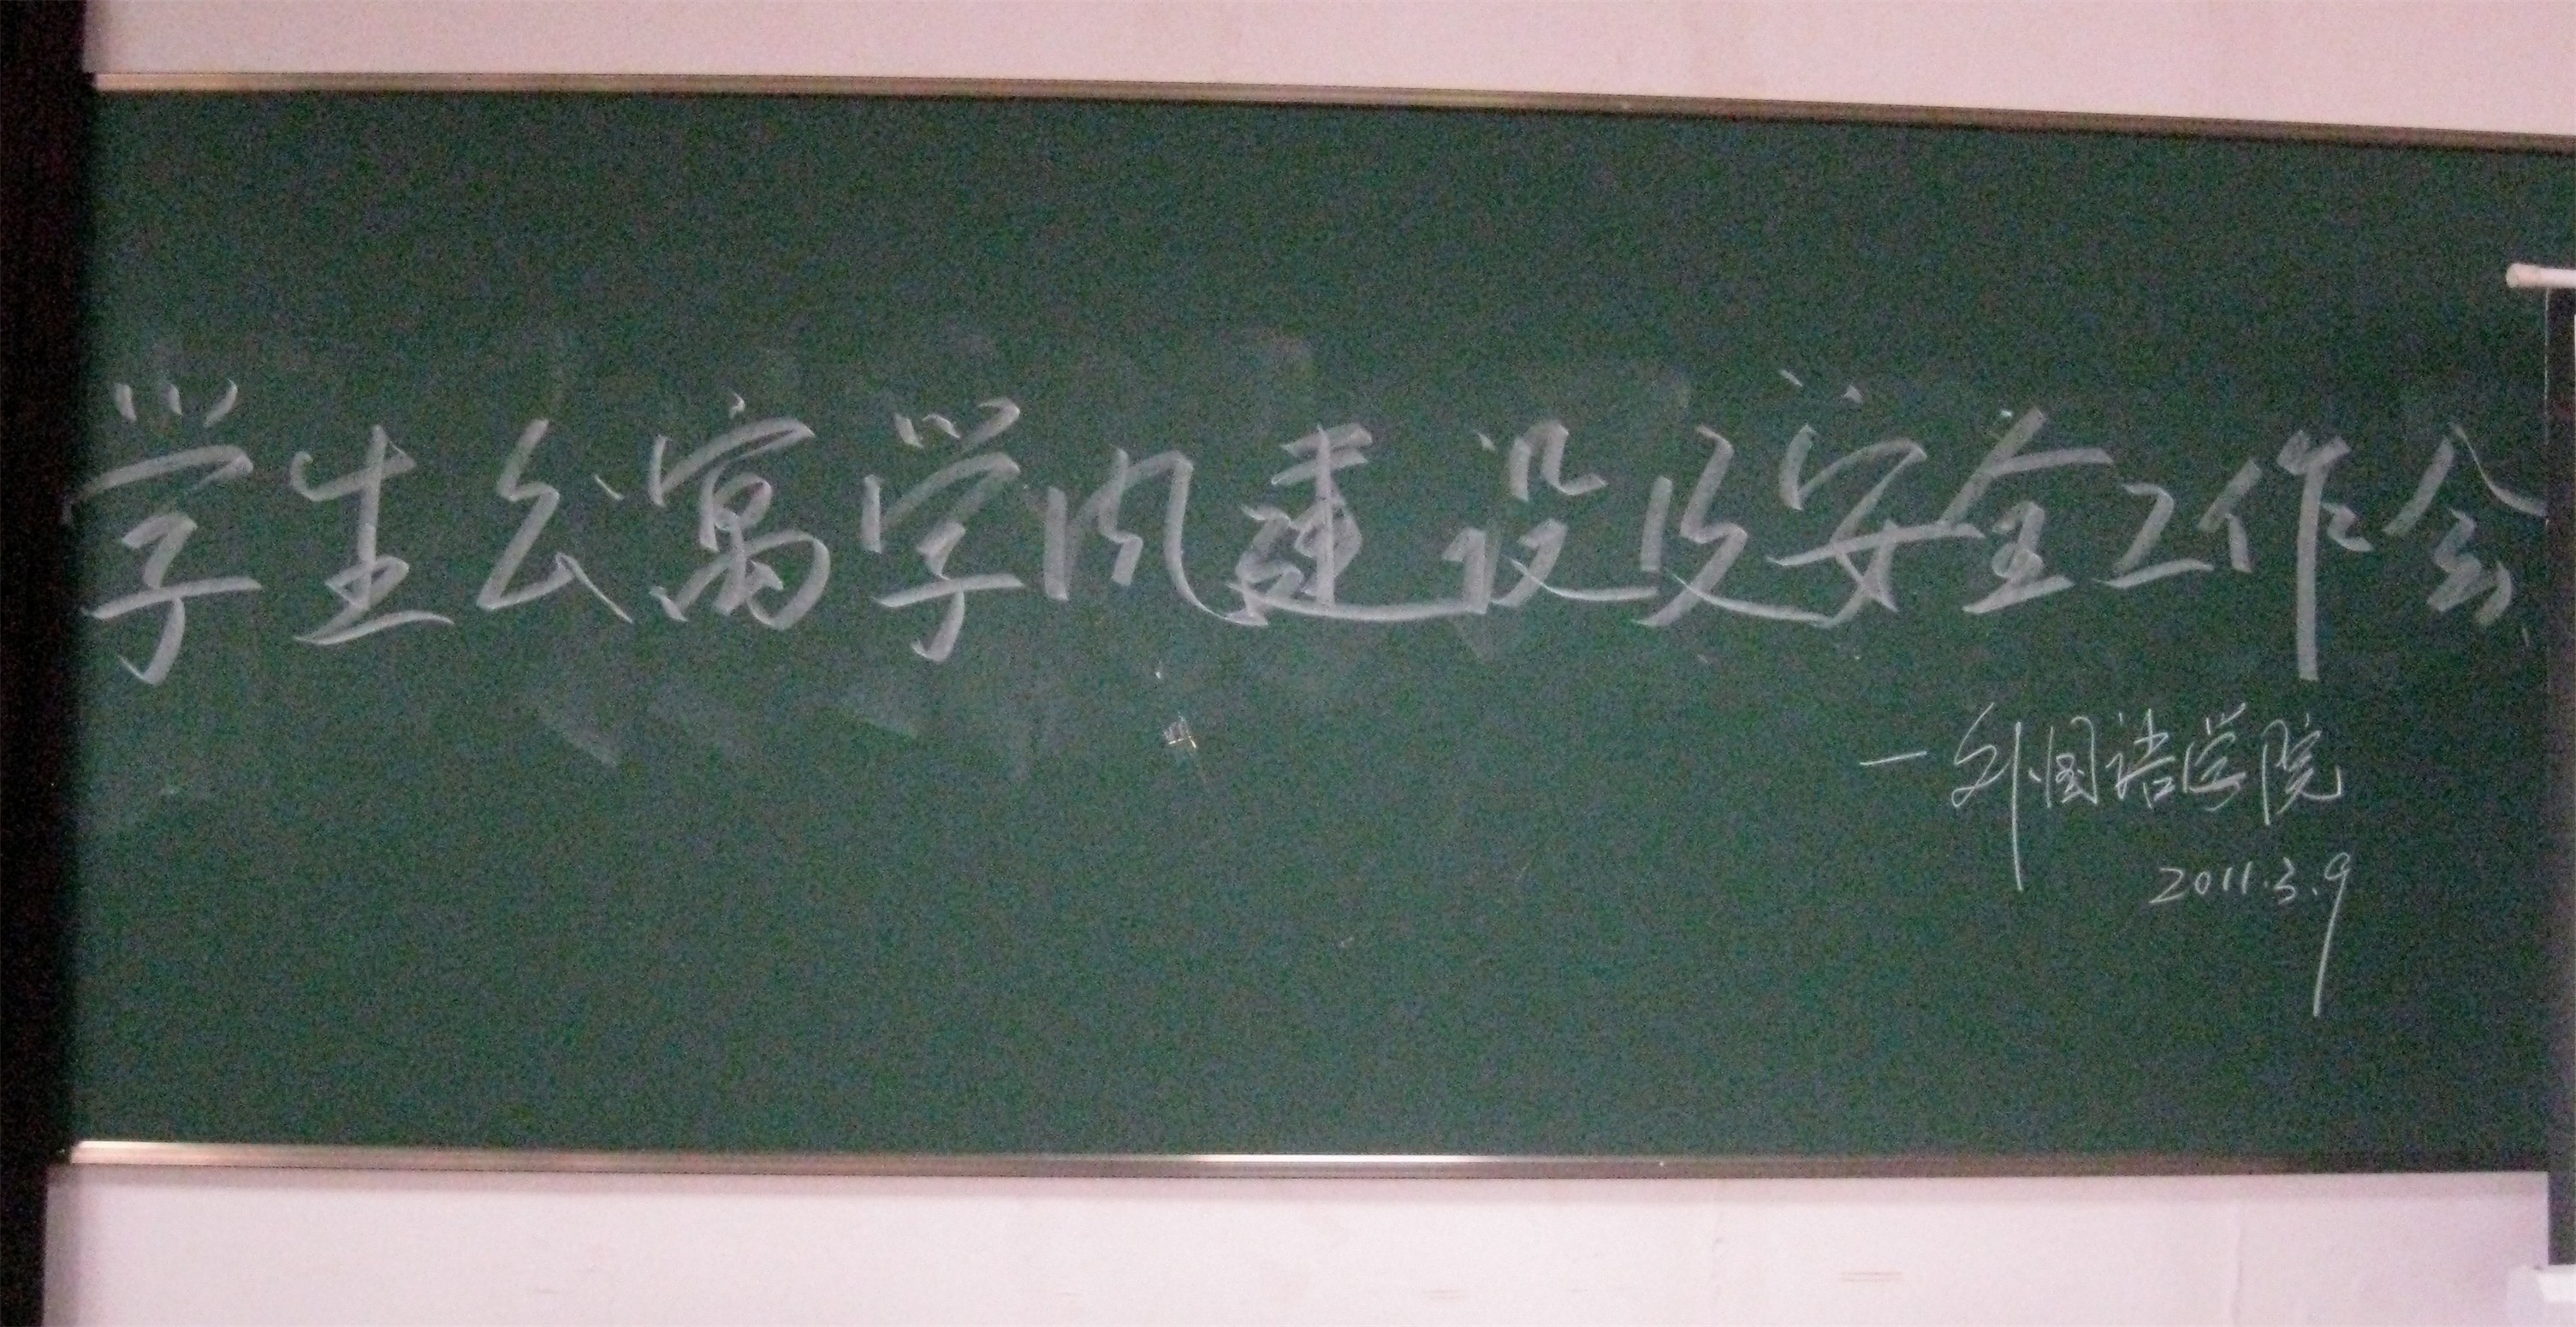 学生公寓学风建设及安全工作会
—外国语学院
2011.3.9